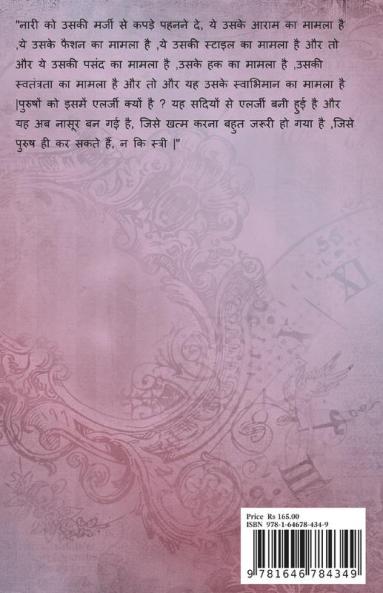 "नारी को उसकी मर्जी से कपड़े पहनने दे, ये उसके आराम का मामला है
,ये उसके फैशन का मामला है ,ये उसकी स्टाइल का मामला है और तो
और ये उसकी पसंद का मामला है ,उसके हक का मामला है ,उसकी
स्वतंत्रता का मामला है और तो और यह उसके स्वाभिमान का मामला है
|पुरुषों को इसमें एलर्जी क्यों है ? यह सदियों से एलर्जी बनी हुई है और
यह अब नासूर बन गई है, जिसे खत्म करना बहुत जरूरी हो गया है ,जिसे
पुरुष ही कर सकते हैं, न कि स्त्री |"
XI
I
III
Price Rs 165.00
ISBN 978-1-64678-434-9
9 781646 784349